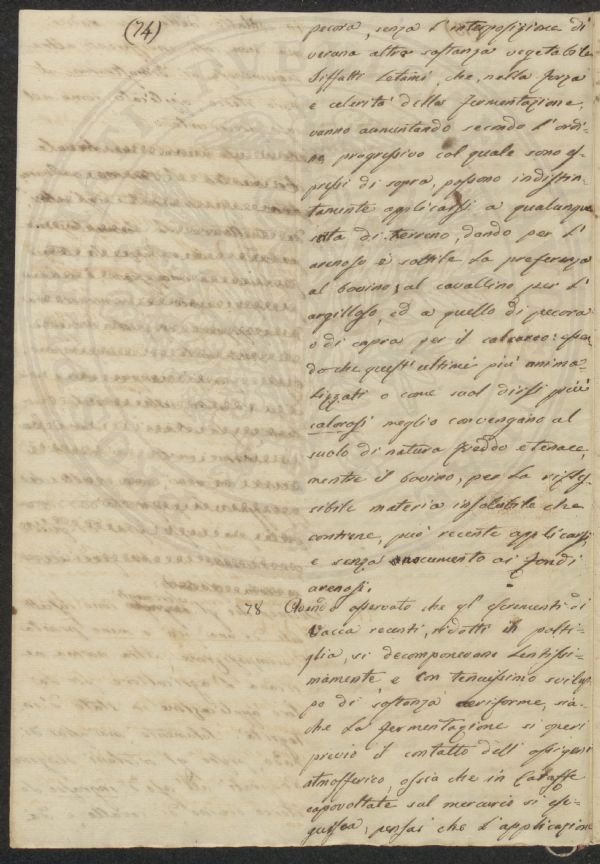 (74)
pecora, senza l'interposizione di
veruna altra sostanza vegetabile
Siffatti Letami, che, nella forza
e celerità della fermentazione,
vanno aumentando secondo l'ordi-
ne progressivo col quale sono es-
pressi di sopra, possono indistin-
tamente applicarsi a qualunque
sorta di terreno, dando per l'
arenoso e sottile la preferenza
al bovino; al cavallino per l'
argilloso, ed a quello di pecora
o di capra per il calcareo: essen-
do che questi ultimi più anima-
lizzati o come suol dirsi più
calorosi meglio convengano al
suolo di natura freddo e tenace,
mentre il bovino, per la
sibile materia insolubile che
contiene, può recente applicarsi,
e senza nocumento ai fondi
arenosi.
78 Avendo osservato che gl'escrementi di
Vacca recenti, ridotti in polti-
glia, si decomponevano lentissi-
mamente e con tenuissimo svilup-
po di sostanza aeriforme, sia-
che la fermentazione si operi
previo il contatto dell'ossigeni
atmosferico, ossia che in Caraffe
capovoltate sul mercurio si ese-
guisca, pensai che l'applicazione